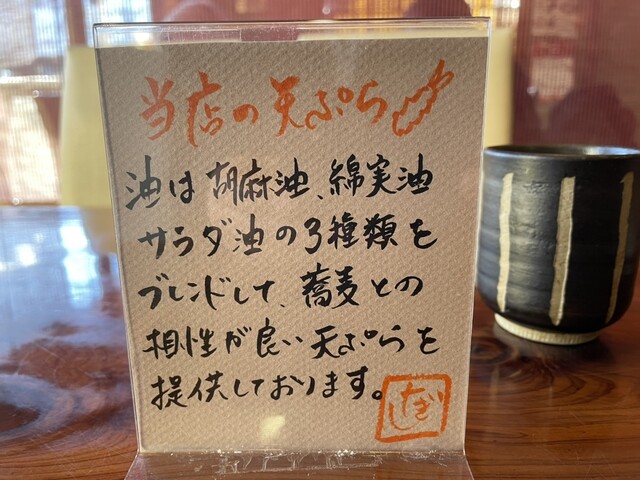 当店の天ぷら
油は胡麻油、綿実油
サラダ油の3種類を
ブレンドして、蕎麦との
相性が良い天ぷらを
提供しております。